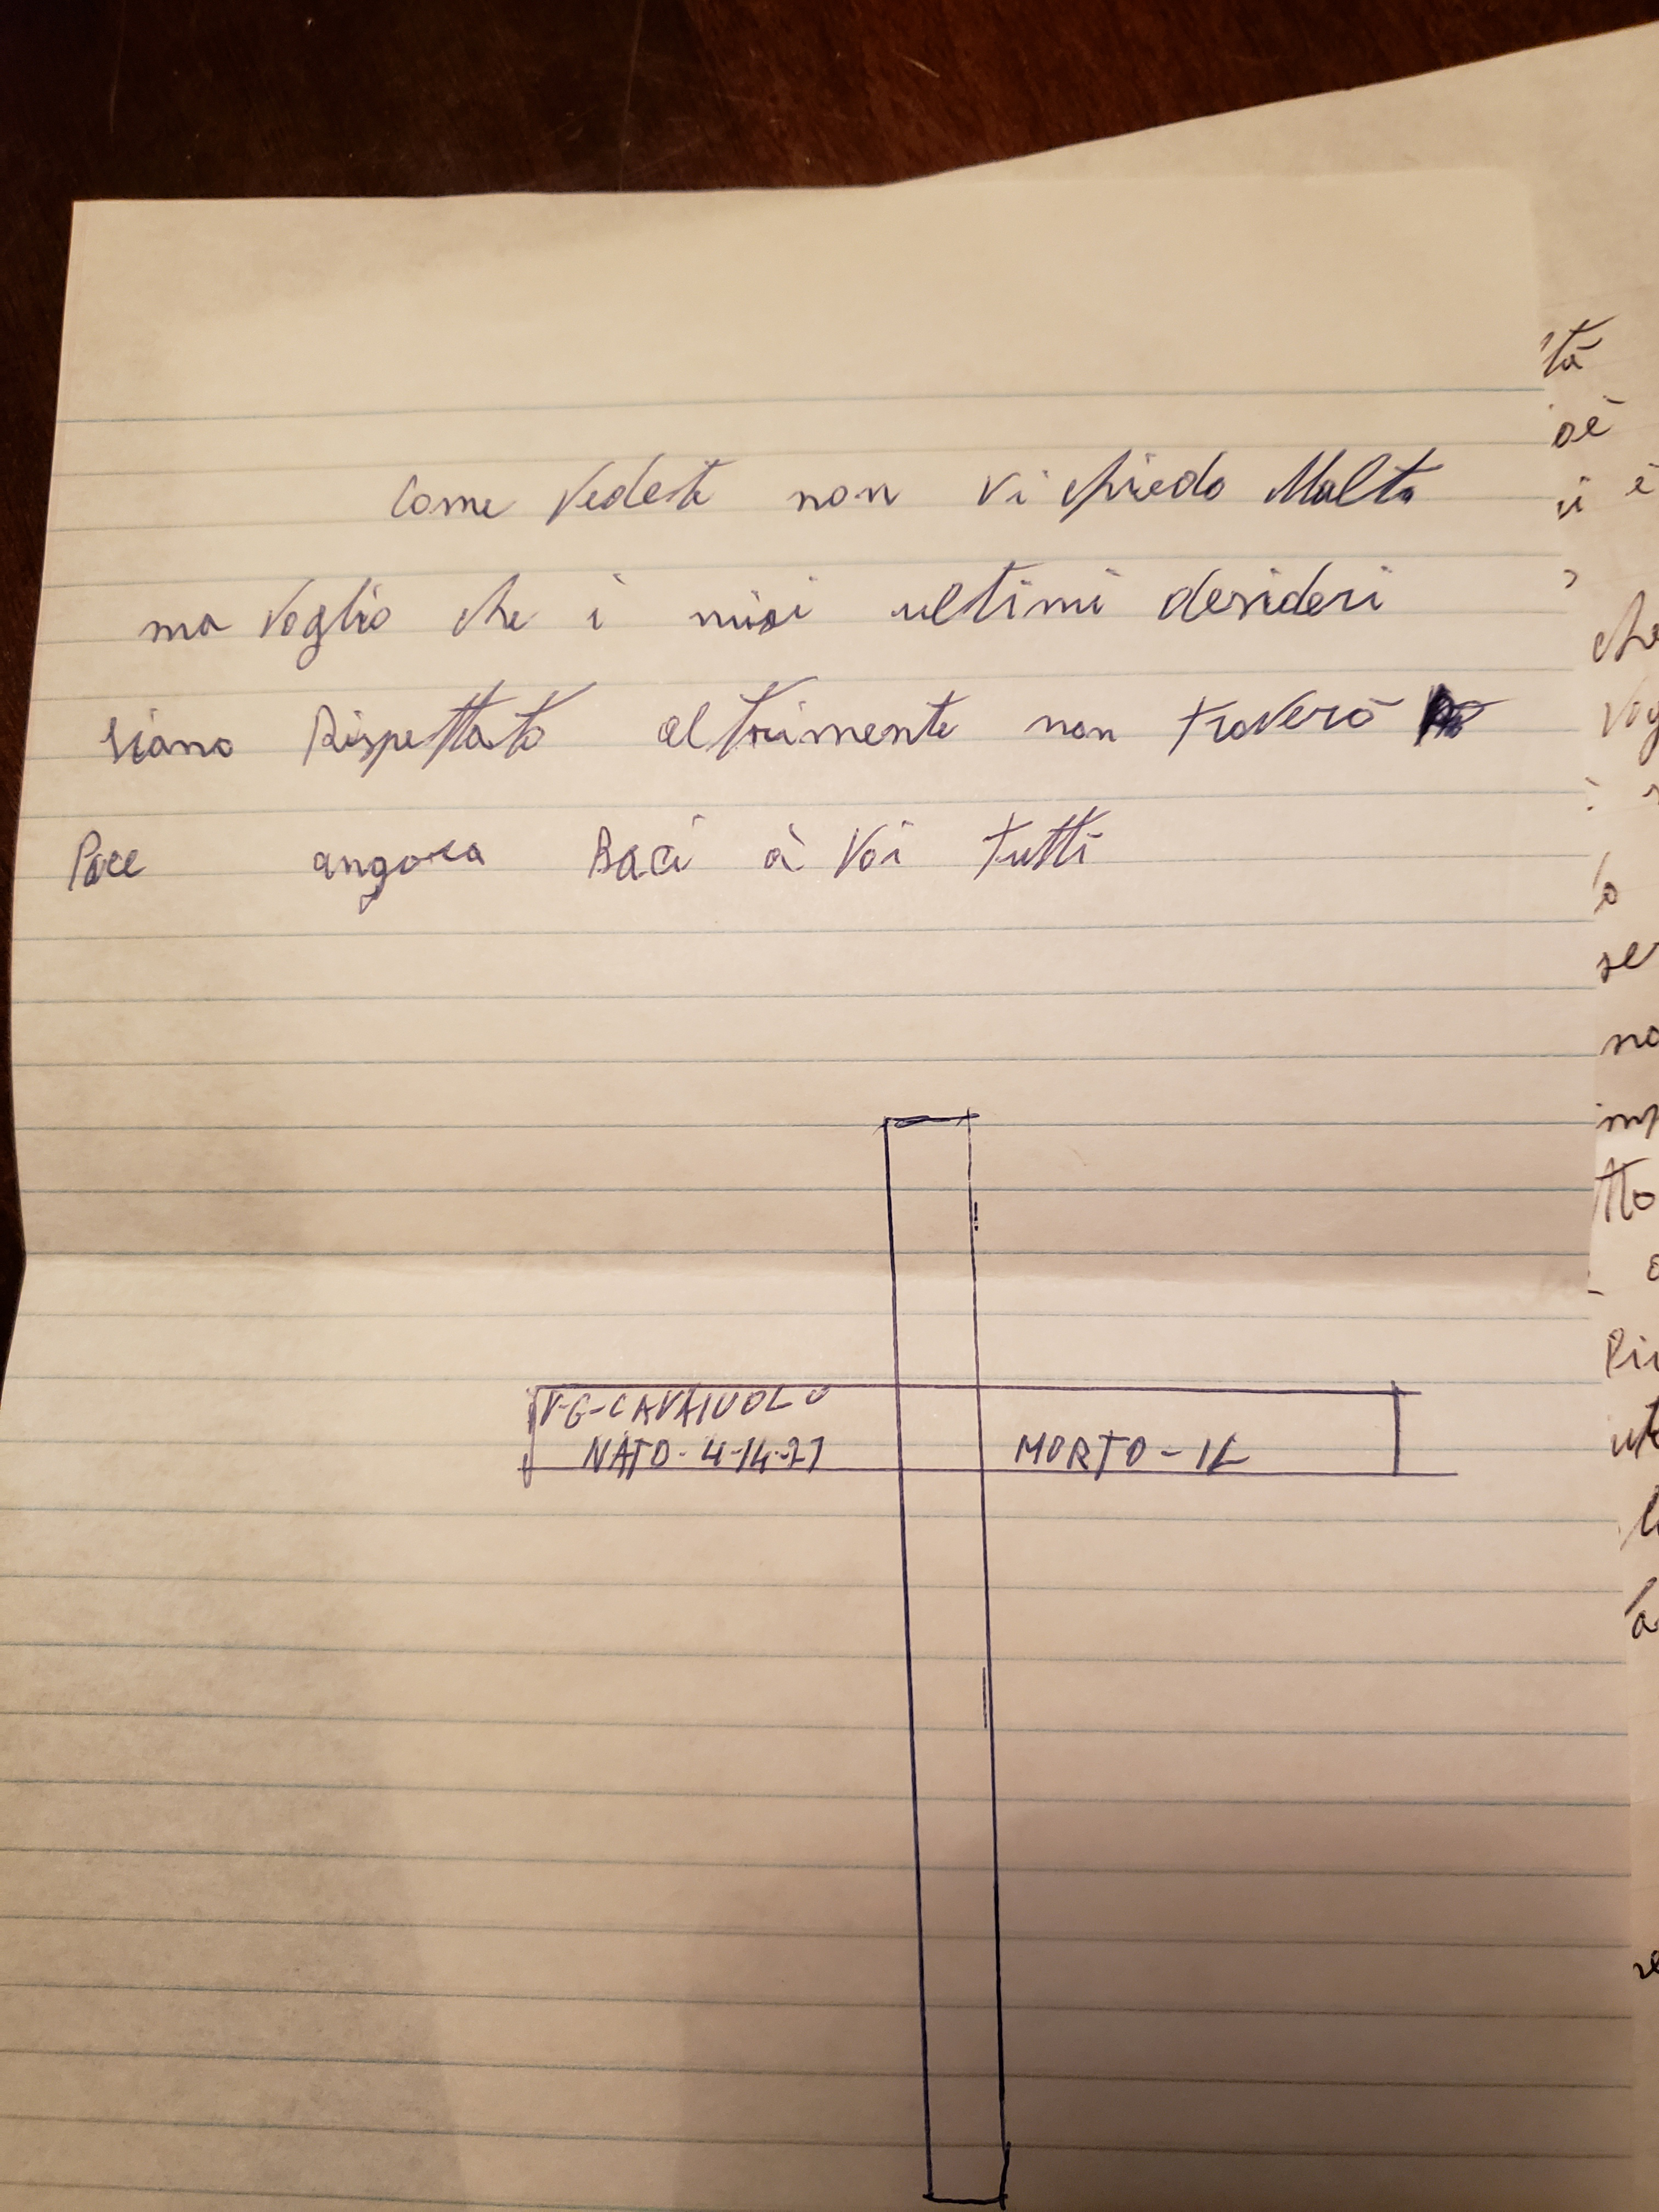 Come Vedete non vi chiedo Molto
ma Voglio che i miei ultimi desideri
siano Rispettato altrimente non troverò
Pace angora Baci à Voi tutti
V-G-CAVAIUOLO
NATO-4-14-27 MORTO-IL